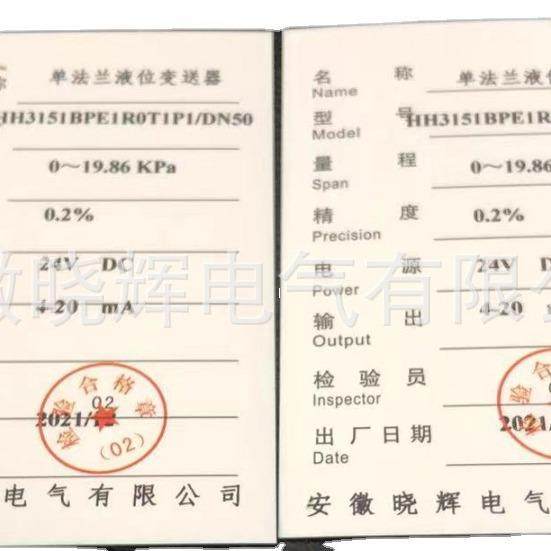 称 单法兰液位变送器
HH3151BPE1R0T1P1/DN50
0～19.86 KPa
0.2%
24V DC
4-20 mA
02
2021/12
检验合格章
(02)
电气有限公司
名 称 单法兰液位
Name
型 号 HH3151BPE1R
Model
量 程 0～19.86
Span
精 度 0.2%
Precision
电 源 24V D
Power
输 出 4-20
Output
检验员
Inspector
出厂日期 2021/
Date
检验合
安徽晓辉电气
徽晓辉电气有限公